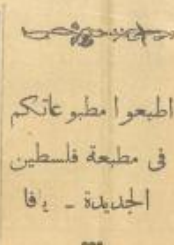 اطبعوا مطبوعاتكم
فى مطبعة فلسطين
الجديدة ـ يافا